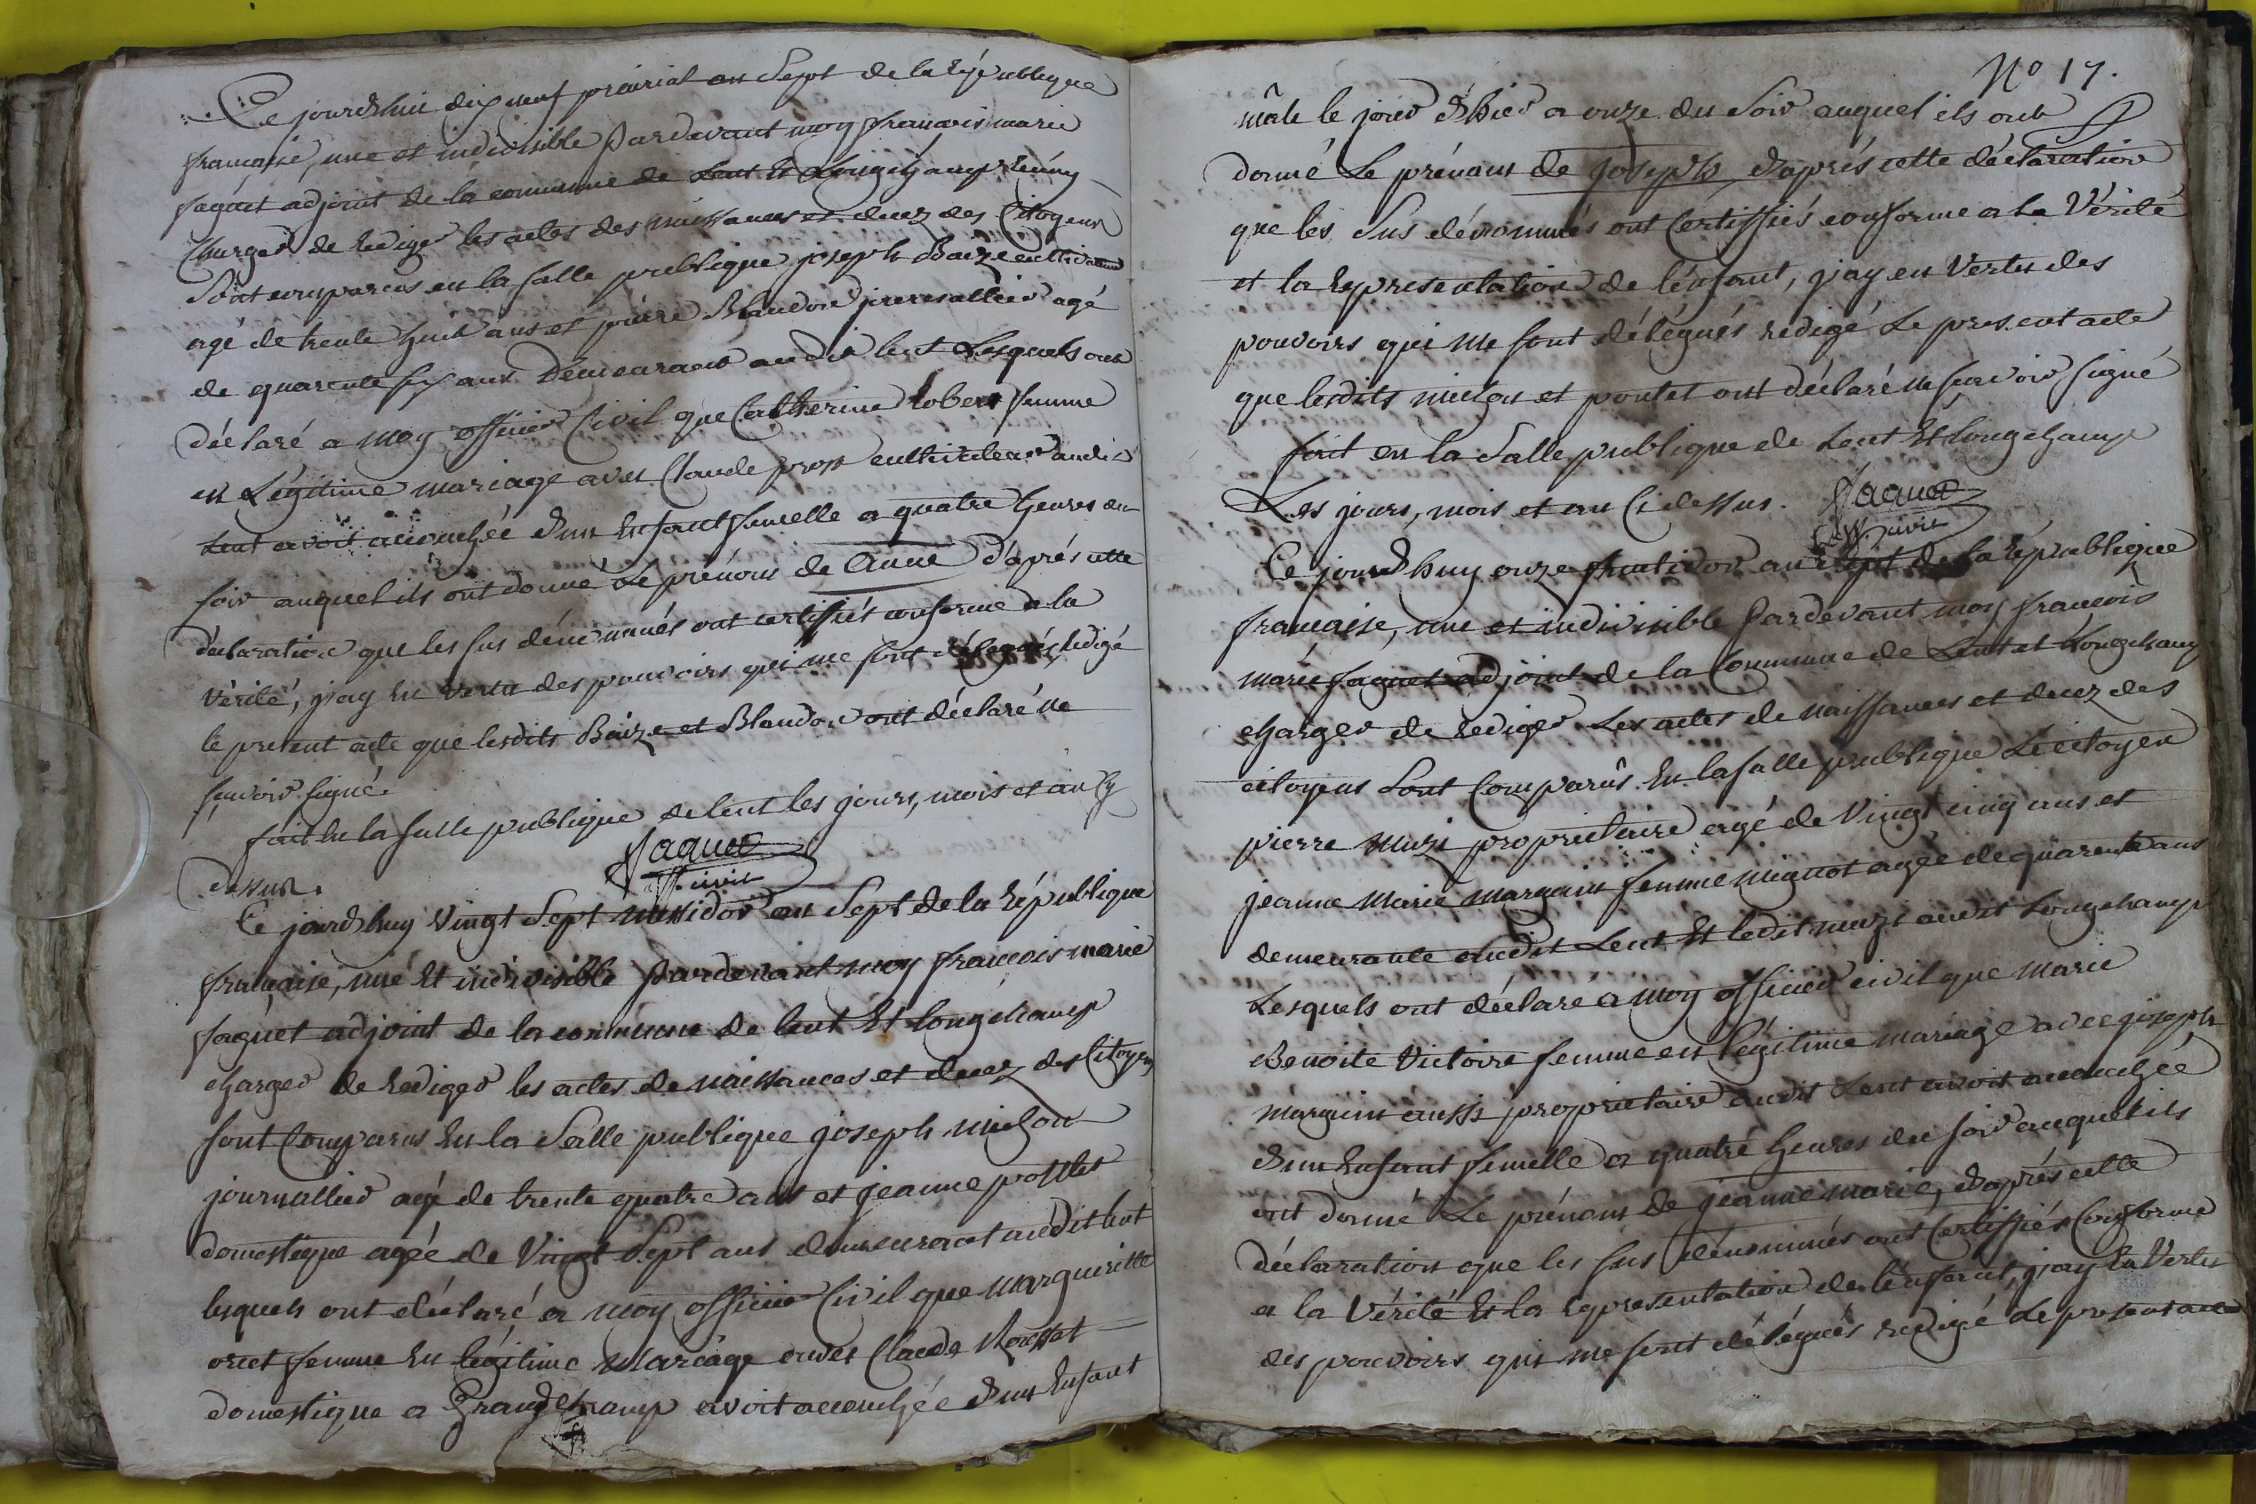 Ce jourd'hui dix neuf prairial an Sept de la République
française, une et indivisible Pardevant moy francois marie
faguet adjoint de la commune de Lent Et Longchamp Réuny
Charger de rediger les actes des naissances et decez des Citoyens
Sont comparus en la salle publique joseph Baize cultivateur
agé de trente huit ans et pierre Blandon journallier agé
de quarente six ans Demeurant audit lent Lesquels ont
déclaré a moy officier Civil que Catherine Robert femme
en Légitime mariage avec Claude pron cultivateur audit
Lent avoit accouchée d'un Enfant femelle a quatre heures du
soir auquel ils ont donné Le prénom de Anne d'aprés cette
déclaration que les sus dénommés ont certiffiés conforme a la
Vérité, j'ay En Vertu des pouvoirs qui me sont délegués redigé
le present acte que lesdits Baize et Blandon ont déclaré ne
savoir signé.
fait En la salle publique de lent les jours, mois et an Cy
dessus.
faguet
off. civil
Ce jourd'huy Vingt Sept messidor an Sept de la République
française, une Et indivisible Pardevant moy francois marie
faguet adjoint de la commune de lent Et longchamp
charger de rediger les actes de naissances et decez des Citoyens
sont Comparus En la Salle publique joseph michon
journallier agé de trente quatre ans et jeanne pottet
domestique agée de Vingt Sept ans demeurant audit lent
lesquels ont déclaré a moy officier Civil que Margueritte
oriet femme En légitime Mariage avec Claude Rousset
domestique a Grandchamp avoit accouchée d'un Enfant
No 17.
mâle le jour d'hier a onze du Soir auquel ils ont
donné Le prénom de joseph d'aprés cette déclaration
que les Sus dénommés ont Certiffiés conforme a la Vérité
et la Representation de l'enfant, j'ay en Vertu des
pouvoirs qui me sont délégués redigé Le present acte
que lesdits michon et poutet ont déclaré ne savoir signé
fait en la Salle publique de Lent Et longchamp
Les jours, mois et an Ci dessus.
faguet
off. civil
Ce jourd'huy onze fructidor an Sept de la République
française, une et indivisible Pardevant moy francois
marie faguet adjoint de la Commune de Lent et Longchamp
charger de rediger Les actes de naissances et decez des
citoyens Sont Comparûs En la salle publique Le citoyen
pierre muzi proprietaire agé de Vingt cinq ans et
jeanne Marie marguin femme mignot agée de quarente ans
demeurante audit Lent Et ledit muzi audit Longchamp
Lesquels ont déclaré a moy officier civil que Marie
Benoite Victoire femme en légitime mariage avec joseph
marguin aussi proprietaire audit Lent avoit accouchée
d'un Enfant femelle a quatre heures du soir auquel ils
ont donné Le prénom de jeanne marie, d'aprés cette
déclaration que les sus dénommés ont Certiffiés Conforme
a la Vérité Et la representation de l'enfant, j'ay En Vertu
des pouvoirs qui me sont délégués redigé Le present acte